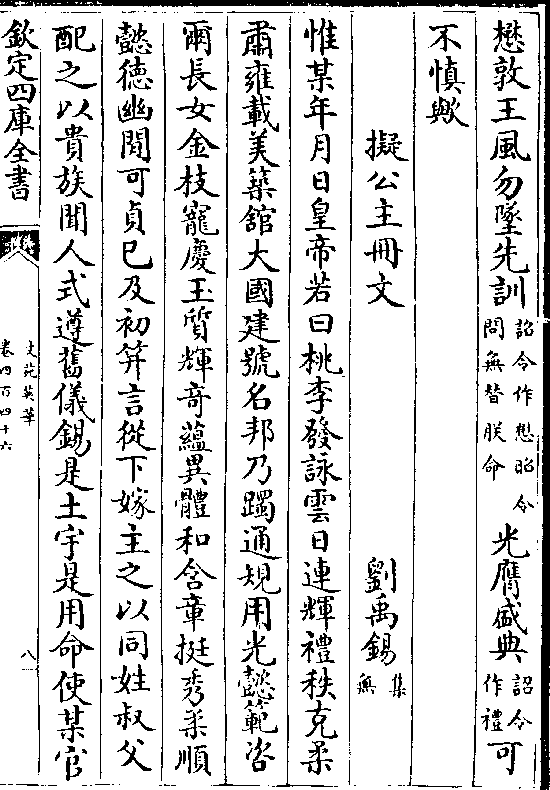 懋敦王風勿墜先訓詔令作懋昭令問無替朕命光膺盛典詔令作禮可
不慎歟
擬公主冊文 劉禹錫集無
惟某年月日皇帝若曰桃李發詠雲日連輝禮秩克柔
肅雍載美築舘大國建號名邦乃躅通規用光懿範咨
爾長女金枝寵慶玉質輝竒蘊異體和含章挺秀柔順
懿德幽閒可貞已及初笄言從下嫁主之以同姓叔父
配之以貴族聞人式遵舊儀錫是土宇是用命使某官
欽定四庫全書
文苑英華
卷四百四十六
八